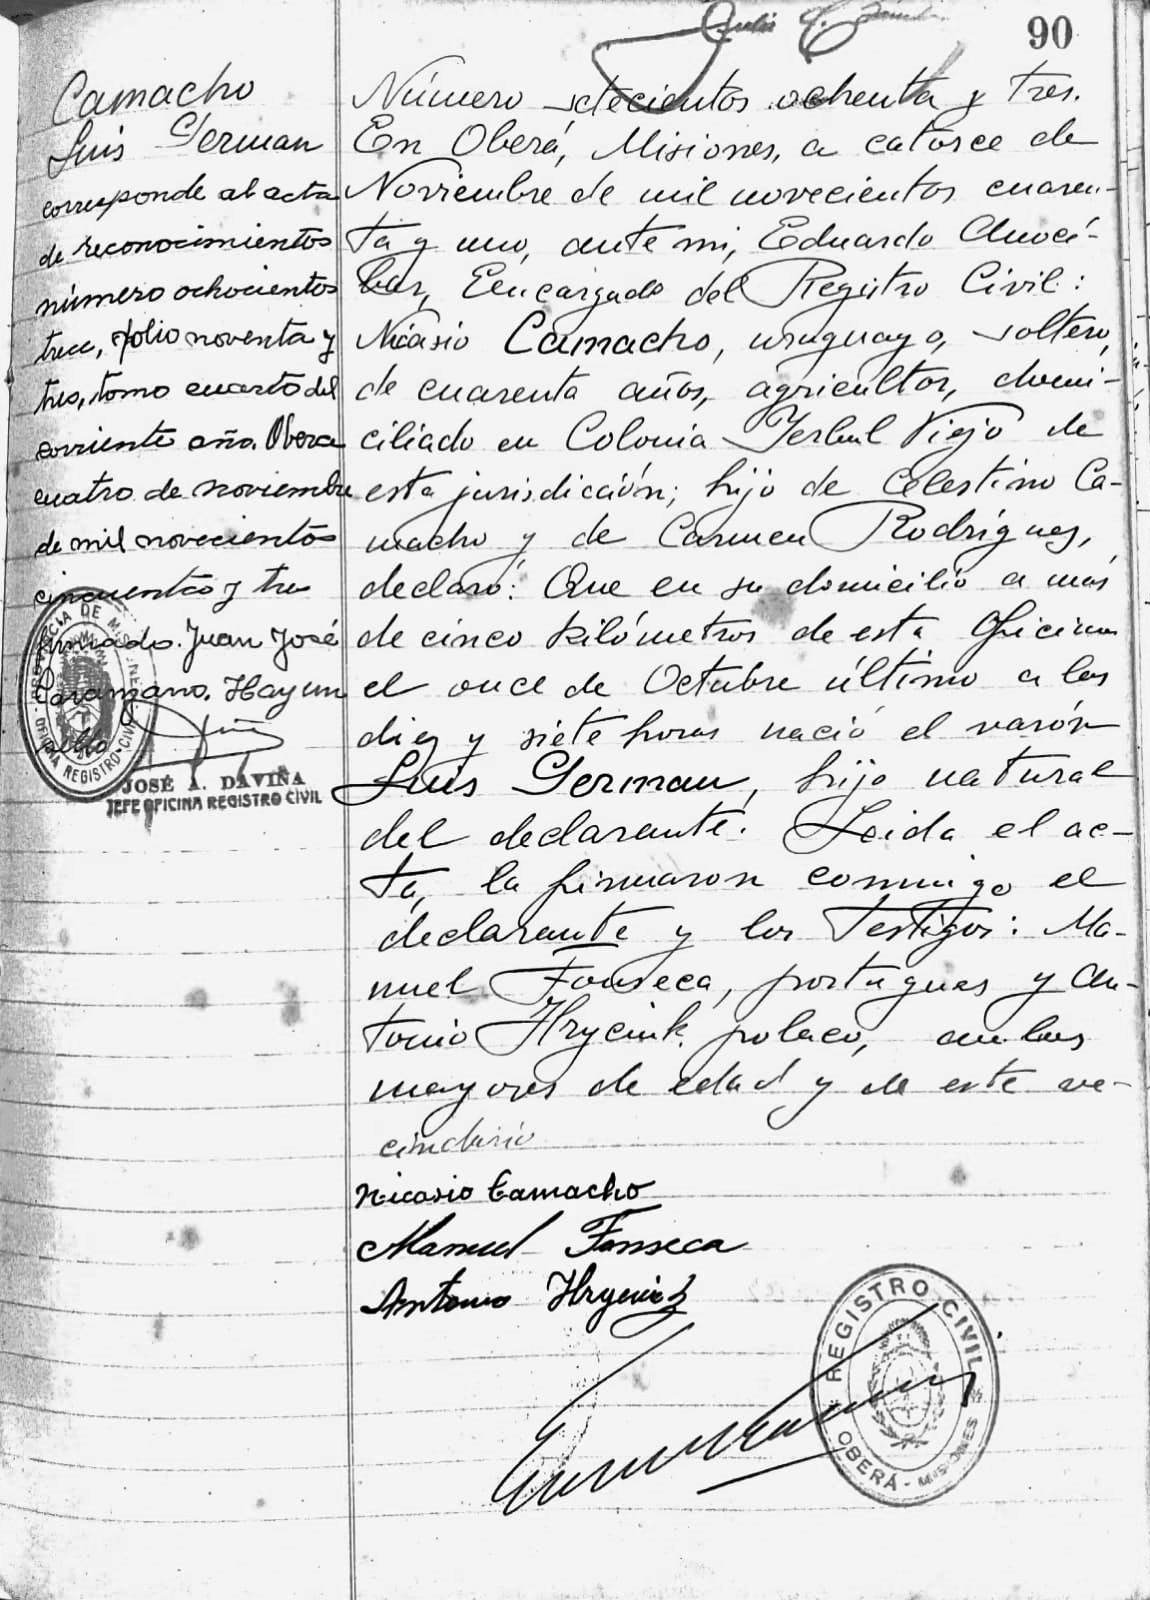 90
Camacho
Luis German
corresponde al acta
de reconocimientos
número ochocientos
trece, folio noventa y
tres, tomo cuarto del
corriente año. Oberá
cuatro de noviembre
de mil novecientos
cincuenta y tres
firmado. Juan José
Hay un
sello
JOSÉ A. DAVIÑA
JEFE OFICINA REGISTRO CIVIL
OFICINA REGISTRO CIVIL
Número setecientos ochenta y tres.
En Oberá, Misiones, a catorce de
Noviembre de mil novecientos cuaren-
ta y uno, ante mi, Eduardo Anocí-
bar, Encargado del Registro Civil:
Nicasio Camacho, uruguayo, soltero,
de cuarenta años, agricultor, domi-
ciliado en Colonia Yerbal Viejo de
esta jurisdicción; hijo de Celestino Ca-
macho y de Carmen Rodríguez,
declaró: Que en su domicilio a más
de cinco kilómetros de esta Oficina
el once de Octubre último a las
diez y siete horas nació el varón
Luis German, hijo natural
del declarante. Leida el ac-
ta, la firmaron conmigo el
declarante y los testigos: Ma-
nuel Fonseca, portugues y An-
tonio Hryciuk, polaco, ambos
mayores de edad y de este ve-
cindario
Nicasio Camacho
Manuel Fonseca
Antonio
REGISTRO CIVIL
OBERÁ - MISIONES